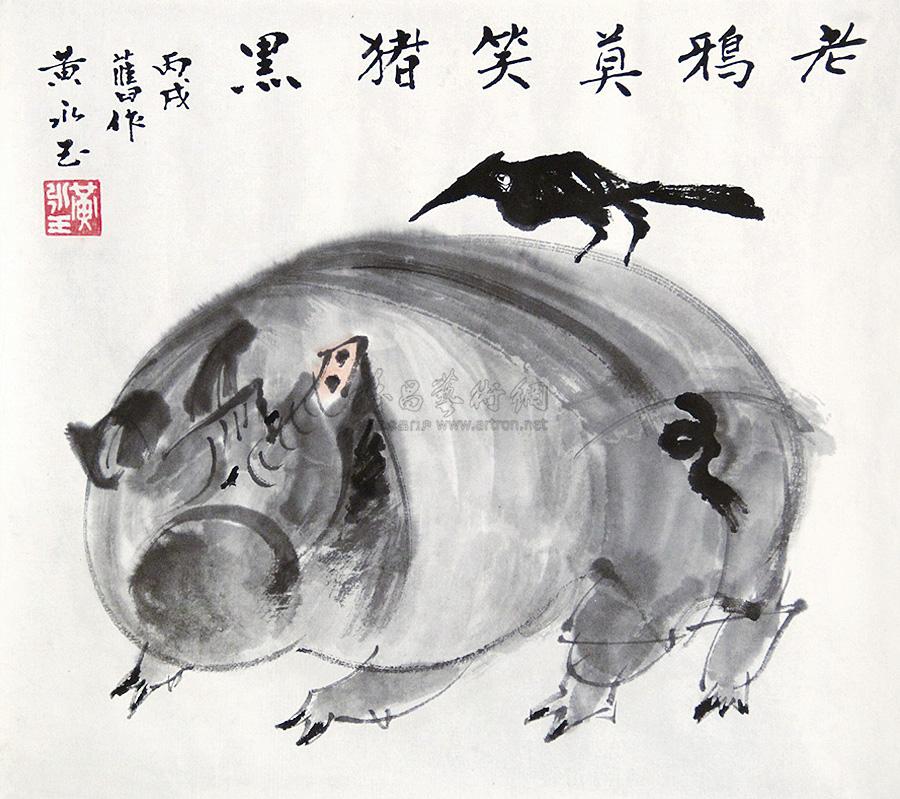 老鸦莫笑猪黑
丙戌
舊作
黄永玉
黄永玉
昌藝術網
www.artron.net